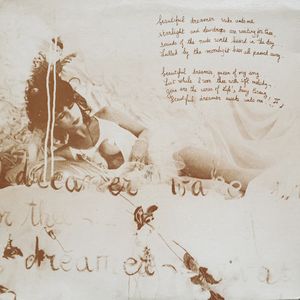 beautiful dreamer wake unto me
starlight and dewdrops are waiting for thee,
sounds of the rude world heard in the day
lulled by the moonlight have all passed away.
beautiful dreamer, queen of my song
list while I woo thee with soft melody,
gone are the cares of life's busy throng
beautiful dreamer awake unto me!
dreamer wake
or thee
dreamer